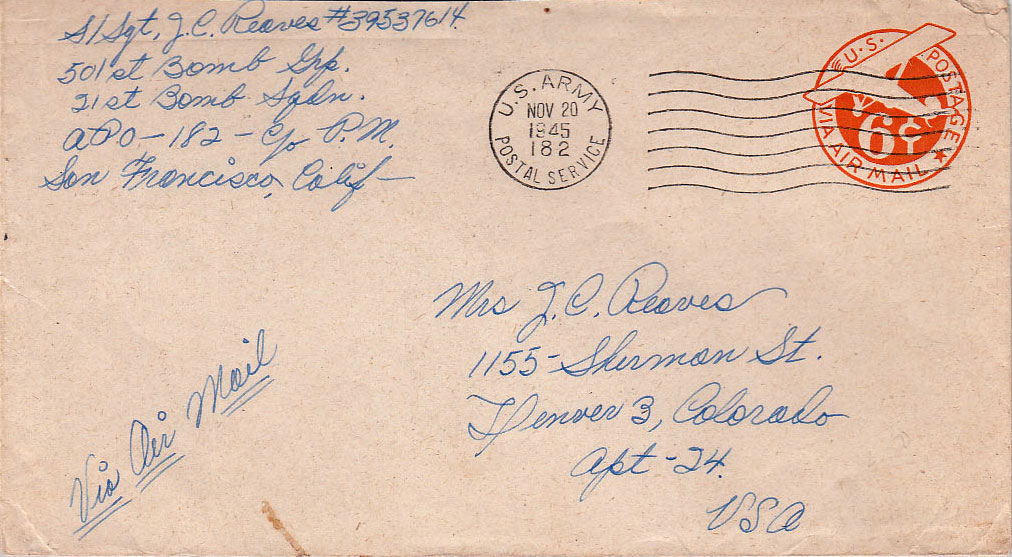 S/Sgt, J.C. Reaves #39537614
501st Bomb Grp.
21st Bomb Sqdn.
APO-182-C/o P.M.
San Francisco, Calif-
U.S. ARMY
NOV 20
1945
182
POSTAL SERVICE
U.S. POSTAGE
6¢
VIA AIR MAIL
Mrs J.C. Reaves
1155-Sherman St.
Denver 3, Colorado
Apt-24.
USA
Via Air Mail